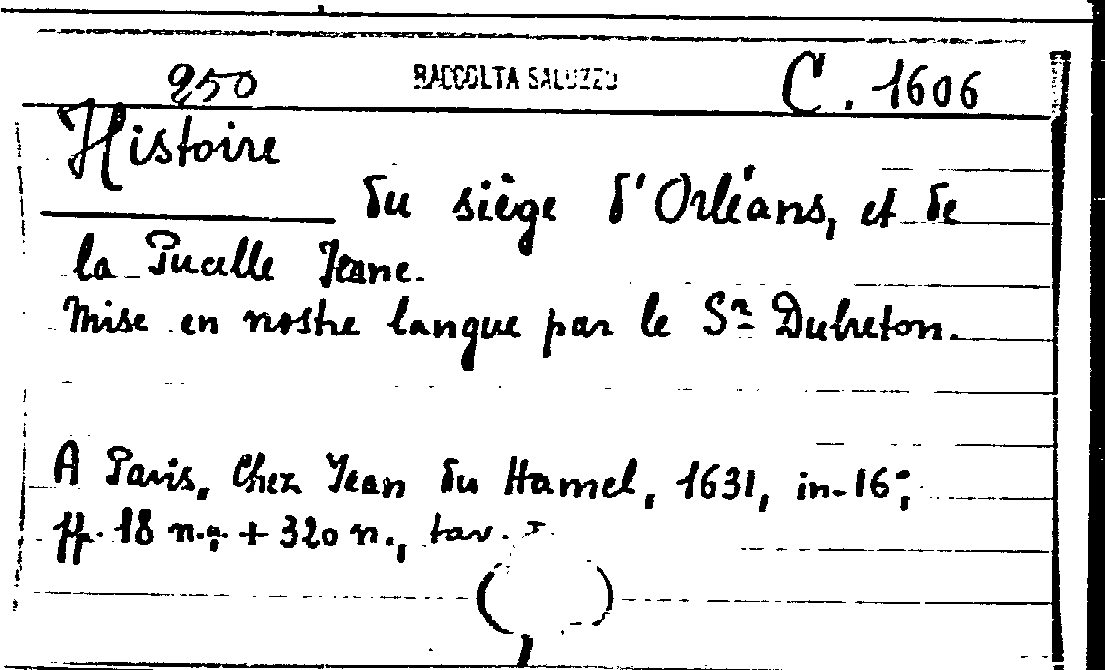 250 RACCOLTA SALUZZO C. 1606
Histoire
du siège d'Orléans, et de
la Pucelle Jeane.
Mise en nostre langue par le Sr Dubreton.
A Paris, Chez Jean du Hamel, 1631, in-16°;
pp. 18 n.n. + 320 n., tav. I